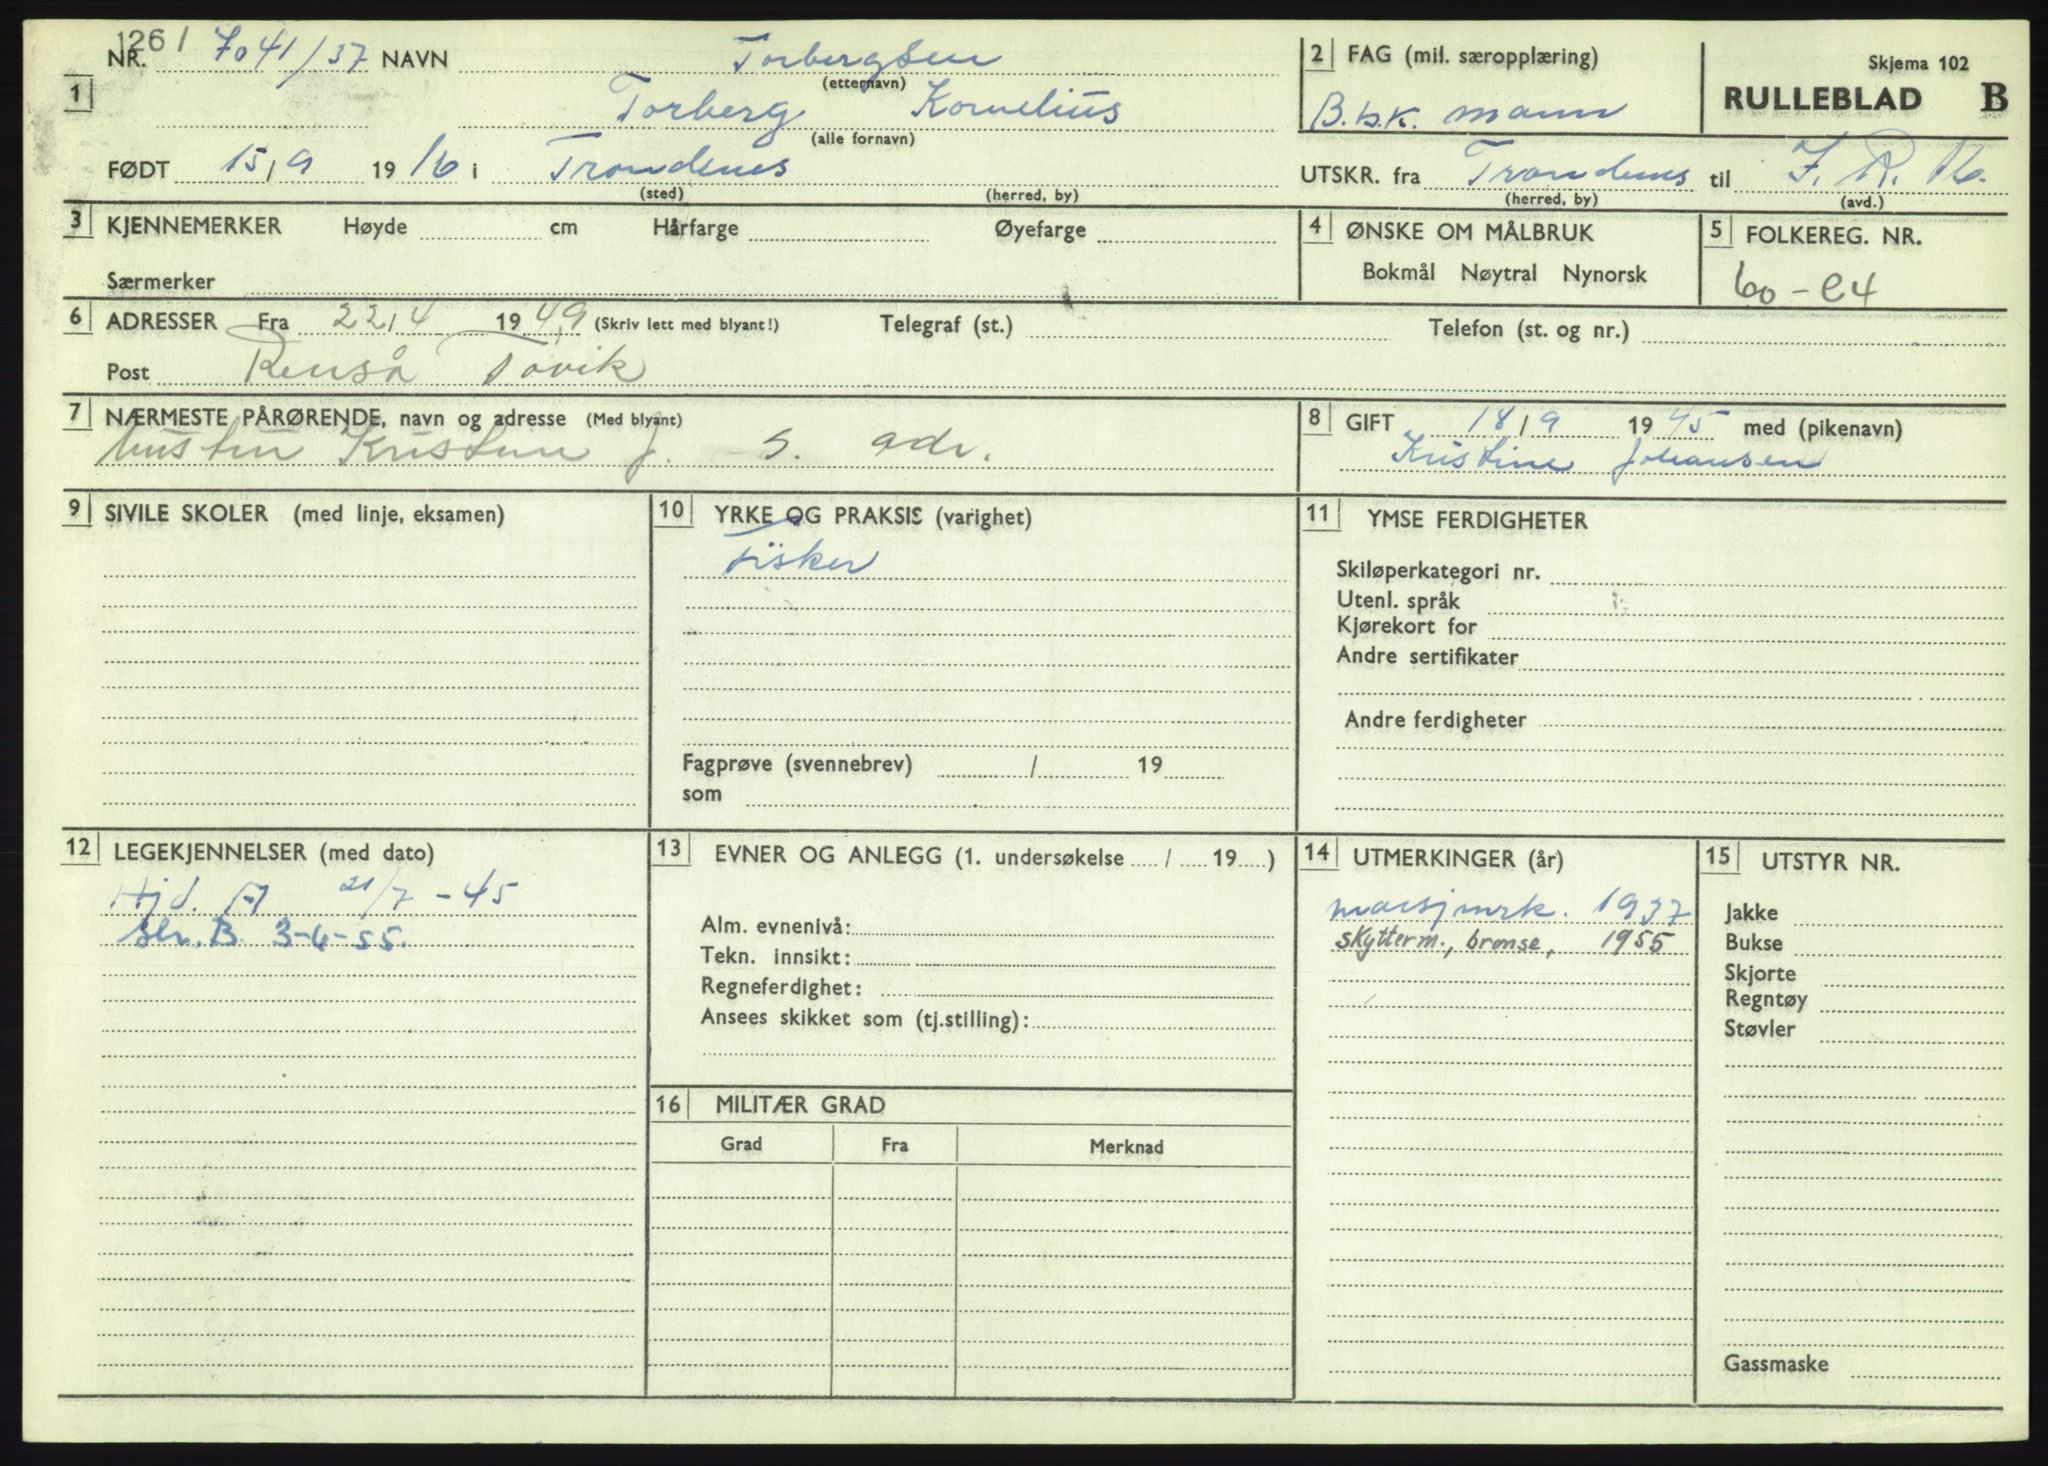 1261
NR. 7041/37 NAVN Torbergsen
(etternavn)
1 Torberg Kornelius
(alle fornavn)
FØDT 15/9 1916 i Trondenes
(sted) (herred, by)
2 FAG (mil. særopplæring)
B.b.k. mann
Skjema 102
RULLEBLAD B
UTSKR. fra Trondenes til I.R.16.
(herred, by) (avd.)
3 KJENNEMERKER Høyde cm Hårfarge Øyefarge
Særmerker
4 ØNSKE OM MÅLBRUK
Bokmål Nøytral Nynorsk
5 FOLKEREG. NR.
60-84
6 ADRESSER Fra 22/4 1949 (Skriv lett med blyant!) Telegraf (st.) Telefon (st. og nr.)
Post Renså Tovik
7 NÆRMESTE PÅRØRENDE, navn og adresse (Med blyant)
hustru Kristine J. s. adr.
8 GIFT 18/9 1945 med (pikenavn)
Kristine Johansen
9 SIVILE SKOLER (med linje, eksamen)
10 YRKE OG PRAKSIS (varighet)
Fisker
Fagprøve (svennebrev) / 19
som
11 YMSE FERDIGHETER
Skiløperkategori nr.
Utenl. språk
Kjørekort for
Andre sertifikater
Andre ferdigheter
12 LEGEKJENNELSER (med dato)
Hjd. A 21/7-45
Str. B. 3-6-55.
13 EVNER OG ANLEGG (1. undersøkelse / 19 )
Alm. evnenivå:
Tekn. innsikt:
Regneferdighet:
Ansees skikket som (tj.stilling):
14 UTMERKINGER (år)
marsjmrk. 1937
skytterm., bronse, 1955
15 UTSTYR NR.
Jakke
Bukse
Skjorte
Regntøy
Støvler
Gassmaske
16 MILITÆR GRAD
Grad Fra Merknad